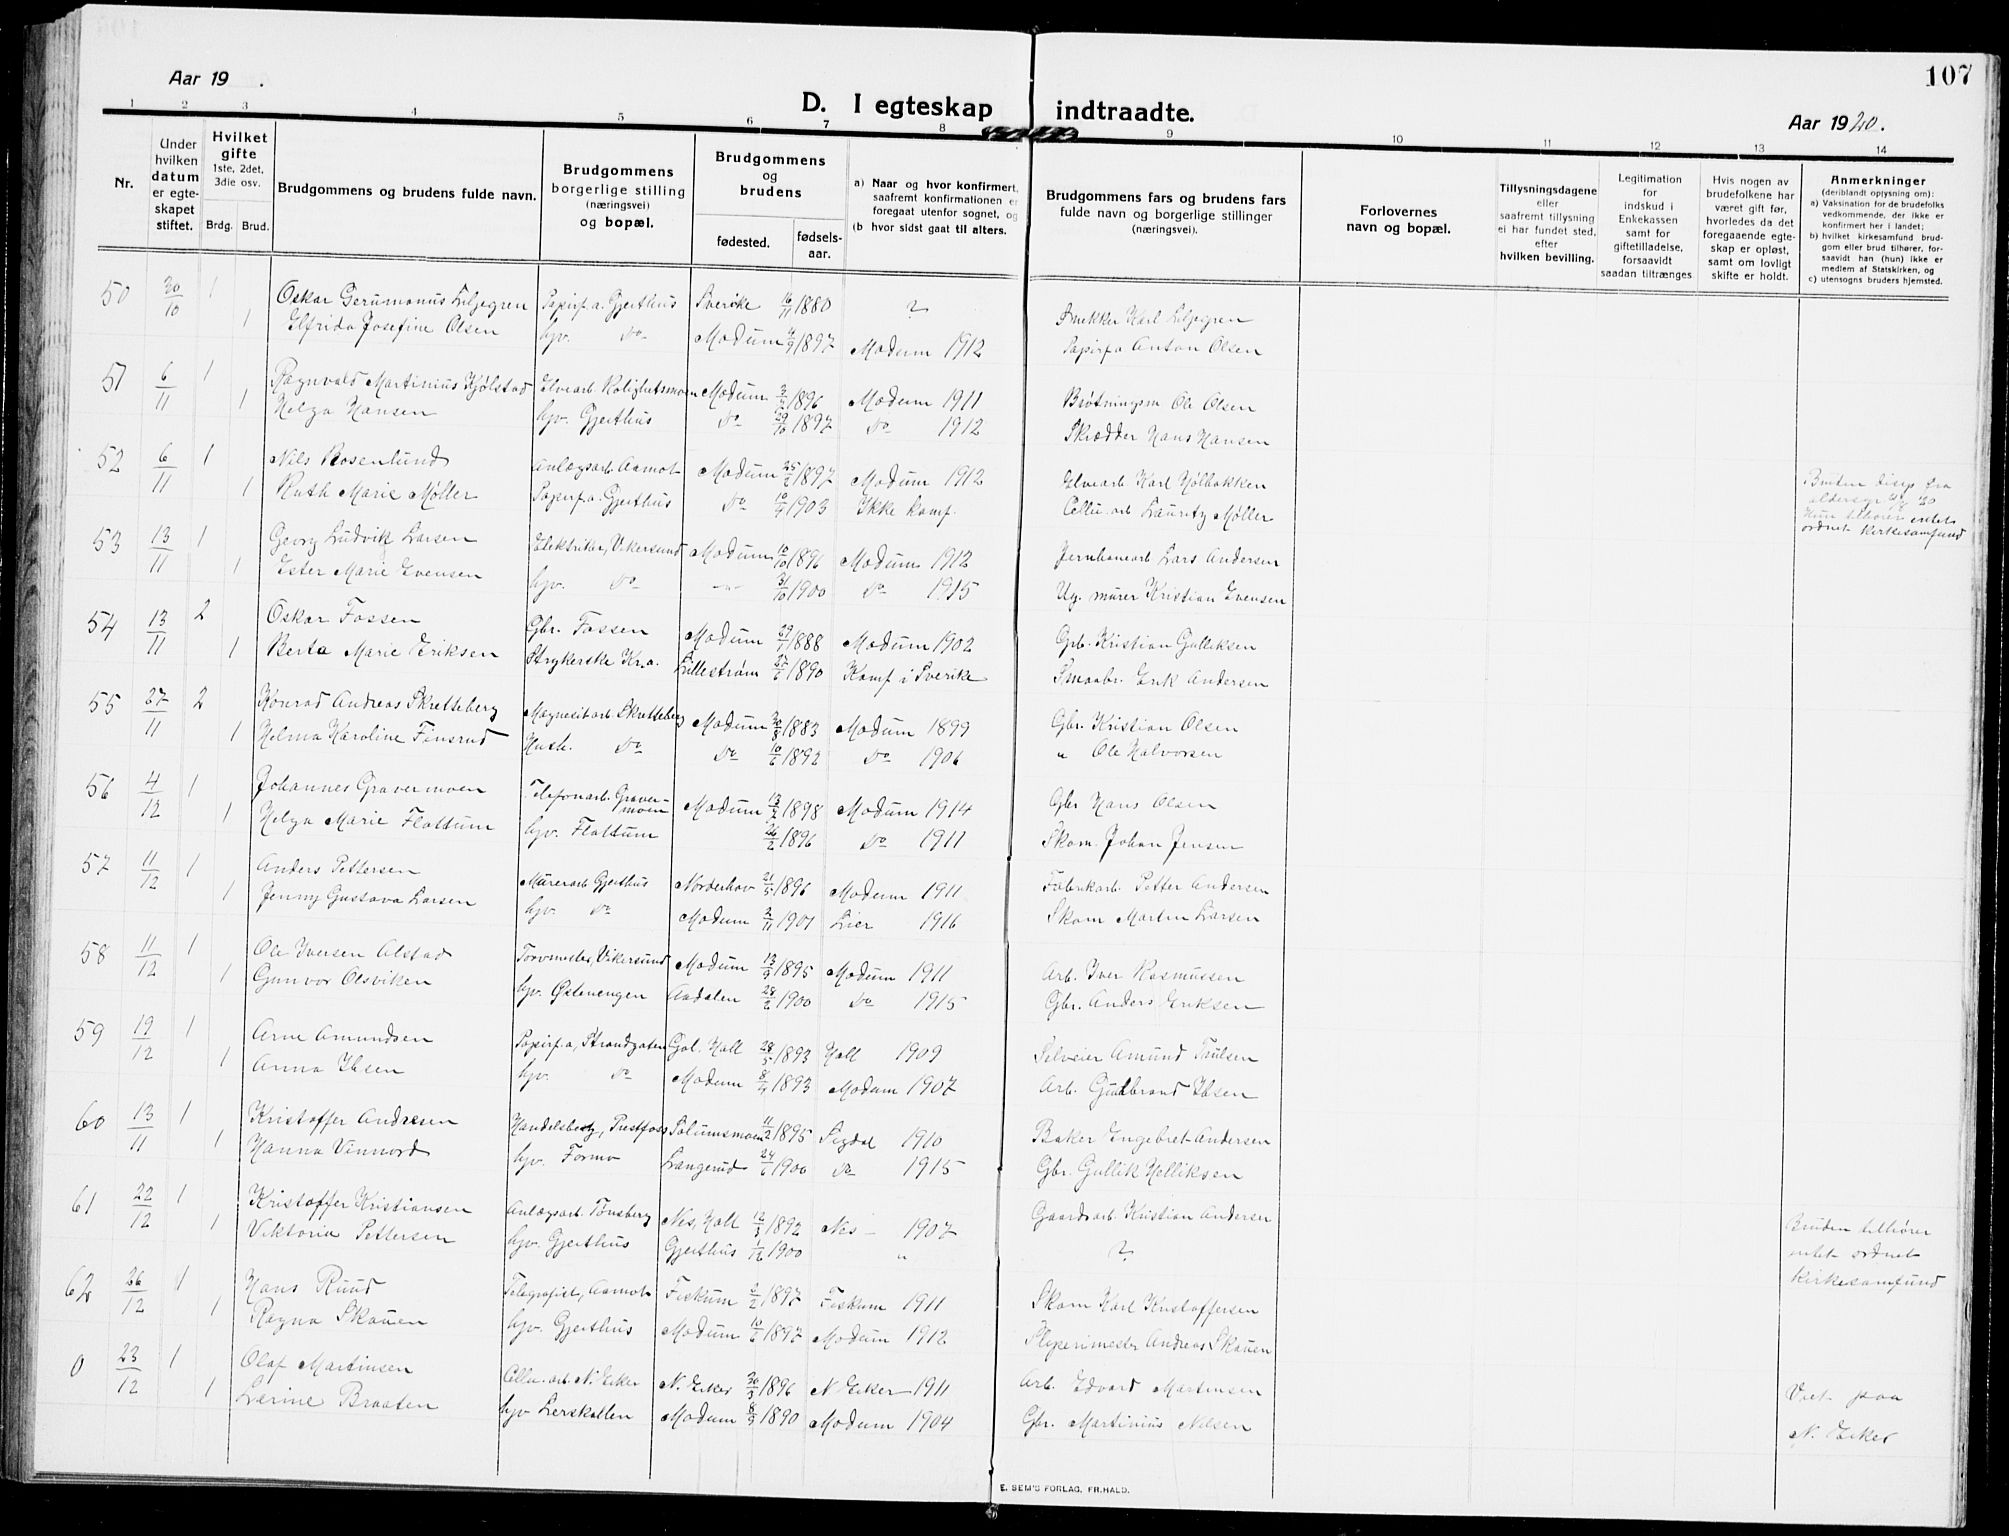 107
Aar 19 .
D. I egteskap indtraadte.
Aar 1920.
1 2 3 4 5 6 7 8 9 10 11 12 13 14
Nr.
Under hvilken datum er egteskapet stiftet.
Hvilket gifte 1ste, 2det, 3die osv.
Brdg. Brud.
Brudgommens og brudens fulde navn.
Brudgommens borgerlige stilling (næringsvei) og bopæl.
Brudgommens og brudens
fødested. fødselsaar.
a) Naar og hvor konfirmert, saafremt konfirmationen er foregaat utenfor sognet, og
(b hvor sidst gaat til alters.
Brudgommens fars og brudens fars fulde navn og borgerlige stillinger (næringsvei).
Forlovernes navn og bopæl.
Tillysningsdagene eller saafremt tillysning ei har fundet sted, efter hvilken bevilling.
Legitimation for indskud i Enkekassen samt for giftetilladelse, forsaavidt saadan tiltrænges
Hvis nogen av brudefolkene har været gift før, hvorledes da det foregaaende egteskap er opløst, samt om lovligt skifte er holdt.
Anmerkninger (deriblandt oplysning om):
a) Vaksination for de brudefolks vedkommende, der ikke er konfirmert her i landet;
b) hvilket kirkesamfund brudgom eller brud tilhører, forsaavidt han (hun) ikke er medlem af Statskirken, og
c) utensogns bruders hjemsted.
50 30/10 1 Oskar Gerumonus Liljegren Papirf.a. Gjerthus Sverike 16/11 1880 ? Smekker Karl Liljegren
1 Elfrida Josefine Olsen hjv. do Modum 4/9 1897 Modum 1912 Papirfa Anton Olsen
51 6/11 1 Ragnvald Martinius Kjølstad Elvearb. Rolighetsmoen Modum 1896 Modum 1911 Brøtningsm Ole Olsen
1 Helga Hansen hjv. Gjerthus do 29/10 1897 do 1912 Skrædder Hans Hansen
52 6/11 1 Nils Rosenlund Anlægsarb. Aamot Modum 1897 Modum 1912 Elvearb Karl Hølbakken
1 Ruth Marie Møller Papirf.a. Gjerthus do 1903 Ikke konf. Cellu. arb Lauritz Møller
Bruden disp fra aldersgr
Hun tilhører intet ordnet kirkesamfund
53 13/11 1 Georg Ludvik Larsen Elektriker, Vikersund Modum 10/10 1896 Modum 1912 Jernbanearb Lars Andersen
1 Ester Marie Evensen hjv. do -"- 31/10 1900 do 1915 Ug. murer Kristian Evensen
54 13/11 2 Oskar Fossen Gbr. Fossen Modum 1888 Modum 1902 Grb. Kristian Gulliksen
1 Berta Marie Eriksen Strykerske Kr.a. Lillestrøm 1890 Konf i Sverike Smaabr. Erik Andersen
55 27/11 2 Konrad Andreas Skretteberg Magnesitarb. Skretteberg Modum 30/8 1883 Modum 1899 Gbr. Kristian Olsen
1 Helma Karoline Finsrud Hush. do do 10/6 1892 do 1906 " Ole Halvorsen
56 4/12 1 Johannes Gravermoen Telefonarb. Gravermoen Modum 1898 Modum 1914 Gbr Hans Olsen
1 Helga Marie Flattum hjv. Flattum 26/2 1896 do 1911 Skom. Johan Jensen
57 11/12 1 Anders Pettersen Murerarb Gjerthus Norderhov 21/5 1896 Modum 1911 Fabrikarb. Petter Andersen
1 Jenny Gustava Larsen hjv. do Modum 2/11 1901 Lier 1916 Skom Martin Larsen
58 11/12 1 Ole Iversen Alstad Torvmester, Vikersund Modum 13/9 1895 Modum 1911 Arb. Iver Rasmussen
1 Gunvor Olsviken hjv. Østenengen Aadalen 28/2 1900 do 1915 Gbr. Anders Eriksen
59 19/12 1 Arne Amundsen Papirf.a, Strandgaten Gol. Hall 28/5 1893 Hall 1909 Selveier Amund Trulsen
1 Anna Ibsen hjv. do Modum 8/4 1893 Modum 1907 Arb. Gudbrand Ibsen
60 13/11 1 Kristoffer Andresen Handelsbest, Prestfoss Solumsmoen 11/2 1895 Sigdal 1910 Baker Engebret Andersen
1 Hanna Vinnord hjv. Formo Langerud 24/6 1900 do 1915 Gbr. Gullik Helliksen
61 22/12 1 Kristoffer Kristiansen Anlægsarb. Tønsberg Nes, Hall 12/3 1892 Nes - 1907 Gaardsarb. Kristian Andersen
1 Viktoria Pettersen hjv. Gjerthus Gjerthus 1/12 1900 " ?
Bruden tilhører intet ordnet kirkesamfund
62 26/12 1 Hans Ruud Telegrafist, Aamot Fiskum 3/2 1897 Fiskum 1911 Skom Karl Kristoffersen
1 Ragna Skauen hjv. Gjerthus Modum 10/6 1897 Modum 1912 Sliperimester Andreas Skauen
0 23/12 1 Olaf Martinsen Cellu. arb. N. Eiker N. Eiker 30/3 1896 N Eiker 1911 Arb. Edvard Martinsen
1 Lærine Braaten hjv Lerskallen Modum 8/3 1890 Modum 1904 Gbr. Martinius Nilsen
Viet paa N. Eiker
E. SEM'S FORLAG, FR.HALD.